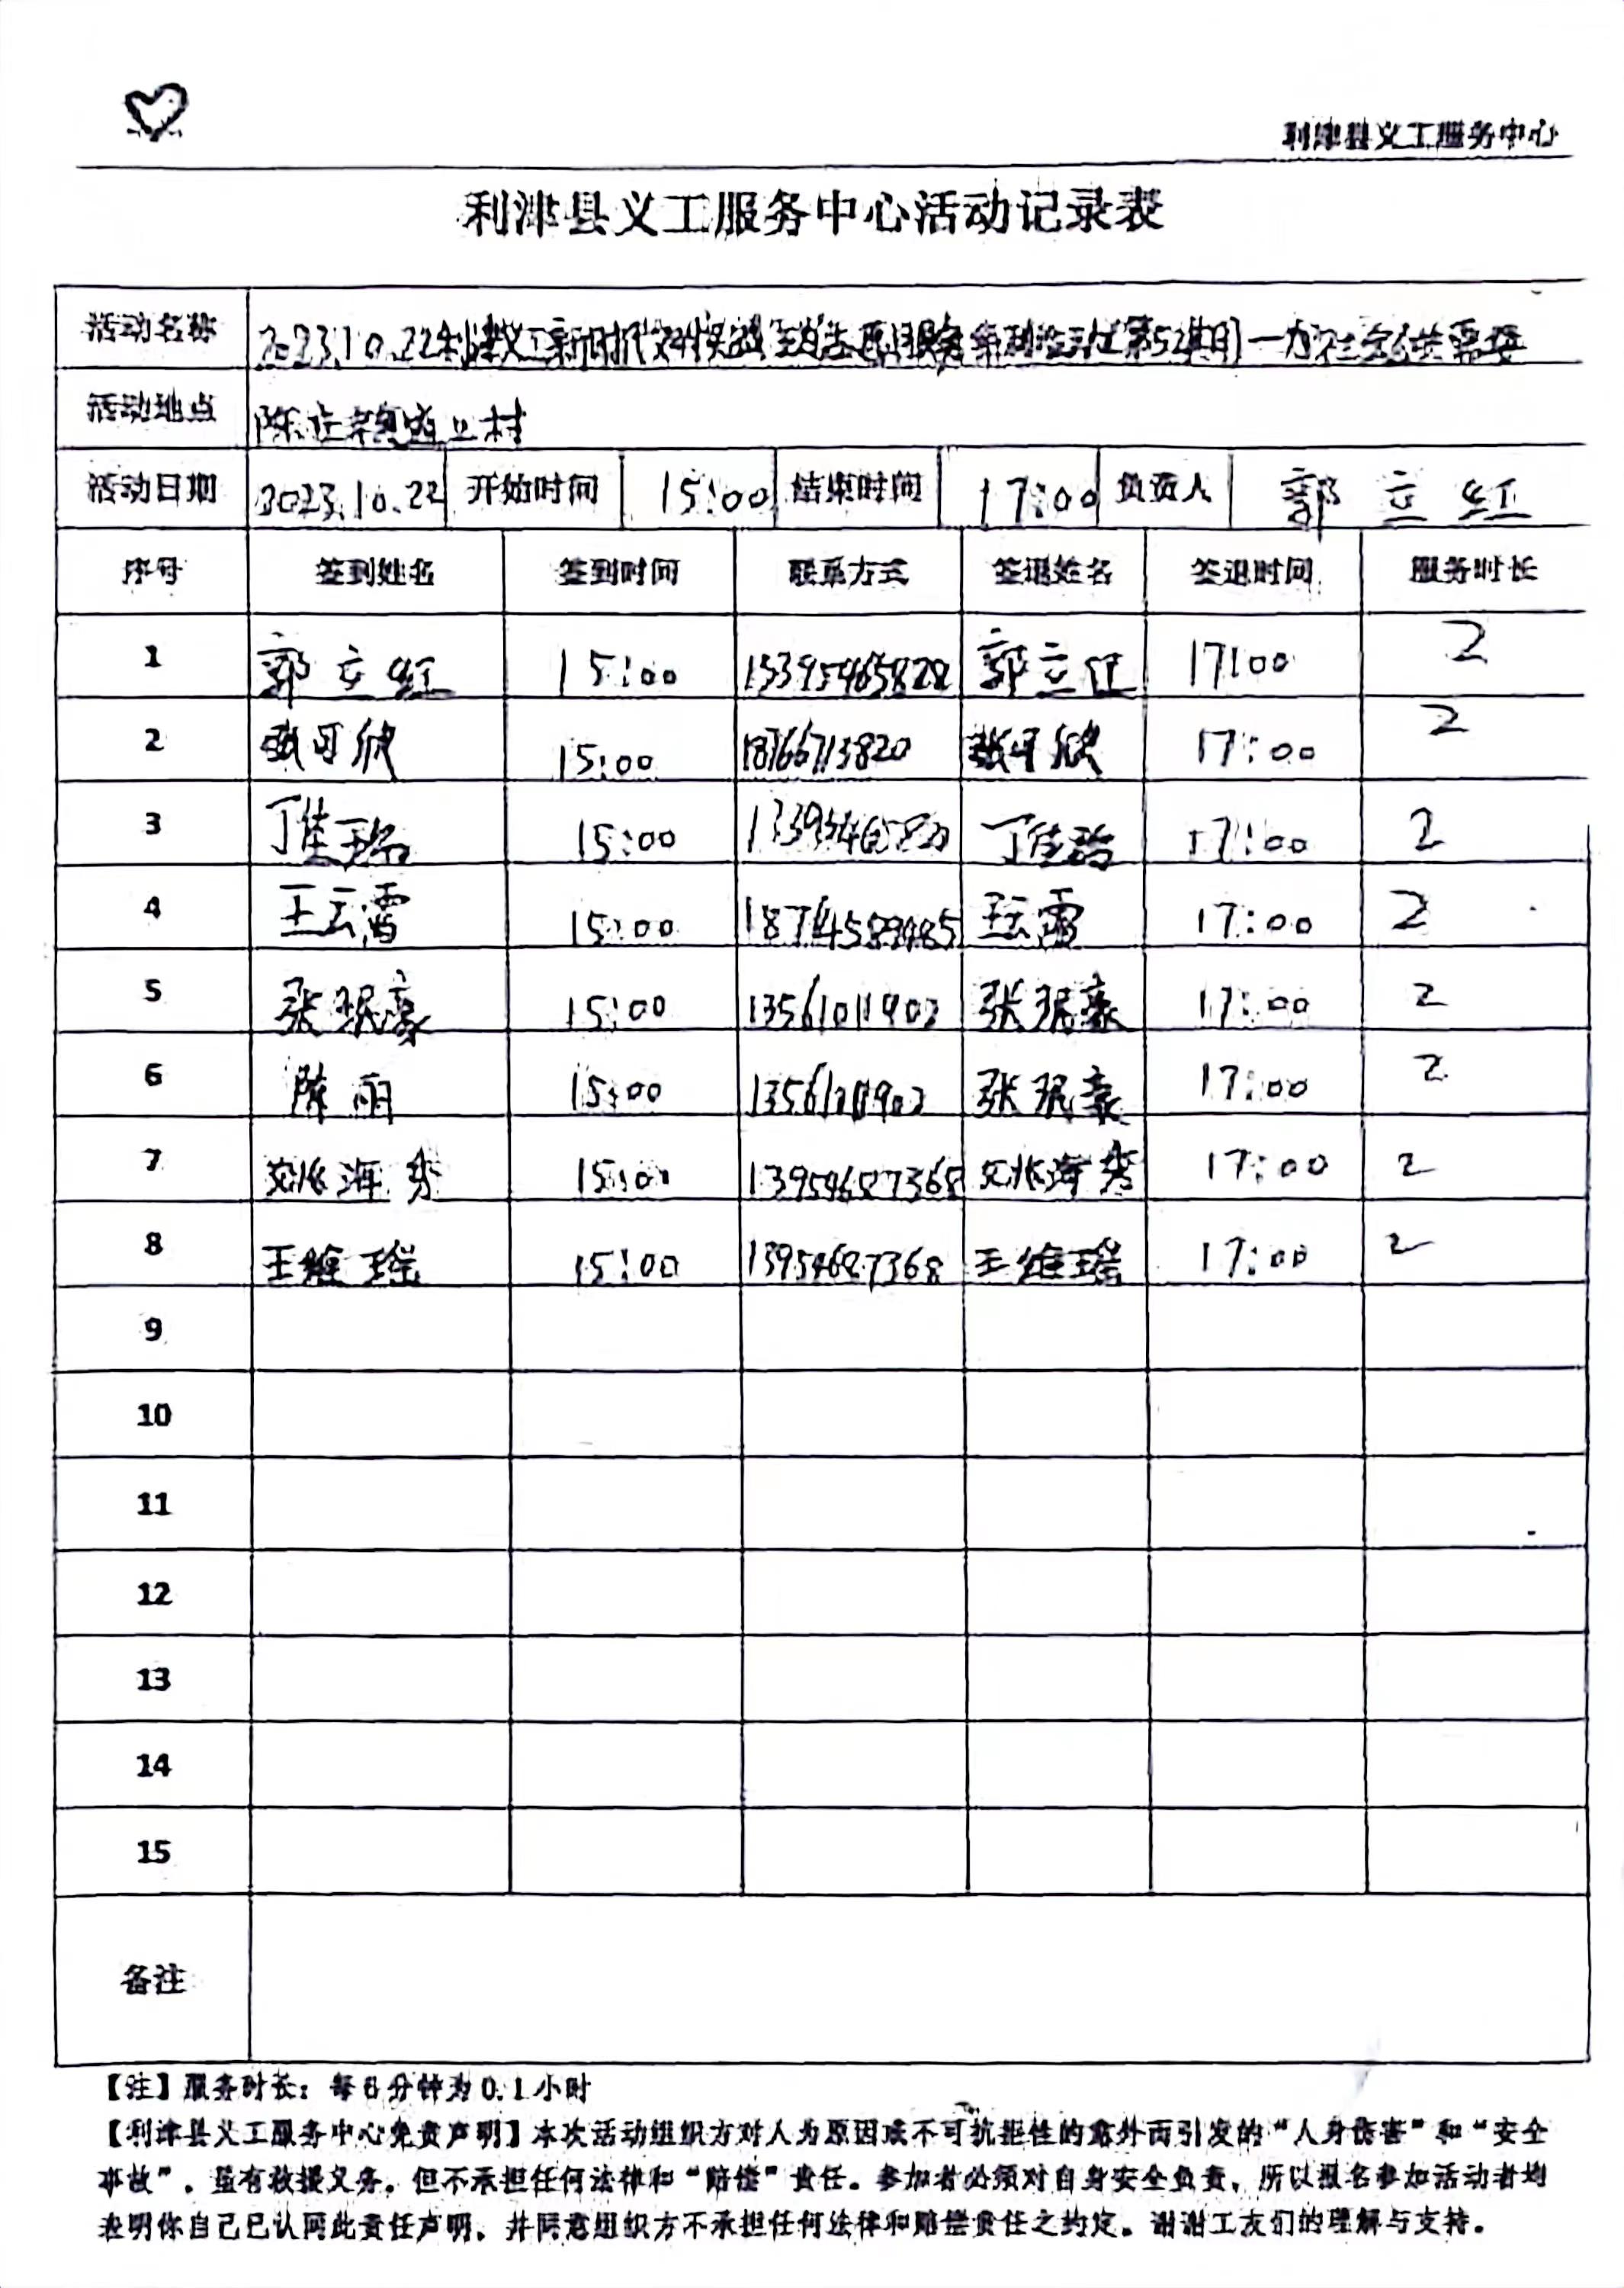 利津县义工服务中心
利津县义工服务中心活动记录表
活动名称 2023.10.22利津义工新时代文明实践 服务系列活动(第52期)一
活动地点 陈庄 村
活动日期 2023.10.22 开始时间 15:00 结束时间 17:00 负责人 郭立红
序号 签到姓名 签到时间 联系方式 签退姓名 签退时间 服务时长
1 郭立红 15:00 15395465828 郭立红 17:00 2
2 15:00 18766713820 17:00 2
3 丁佳铭 15:00 丁佳铭 17:00 2
4 王云霄 15:00 王云霄 17:00 2
5 张珉豪 15:00 13561011902 张珉豪 17:00 2
6 陈丽 15:00 张珉豪 17:00 2
7 海秀 15:00 13954627368 海秀 17:00 2
8 王维瑶 15:00 13954627368 王维瑶 17:00 2
9
10
11
12
13
14
15
备注
【注】服务时长：每6分钟为0.1小时
【利津县义工服务中心免责声明】本次活动组织方对人为原因或不可抗拒性的意外而引发的“人身伤害”和“安全
事故”，虽有救援义务，但不承担任何法律和“赔偿”责任。参加者必须对自身安全负责，所以报名参加活动者均
表明你自己已认同此责任声明，并同意组织方不承担任何法律和赔偿责任之约定。谢谢工友们的理解与支持。